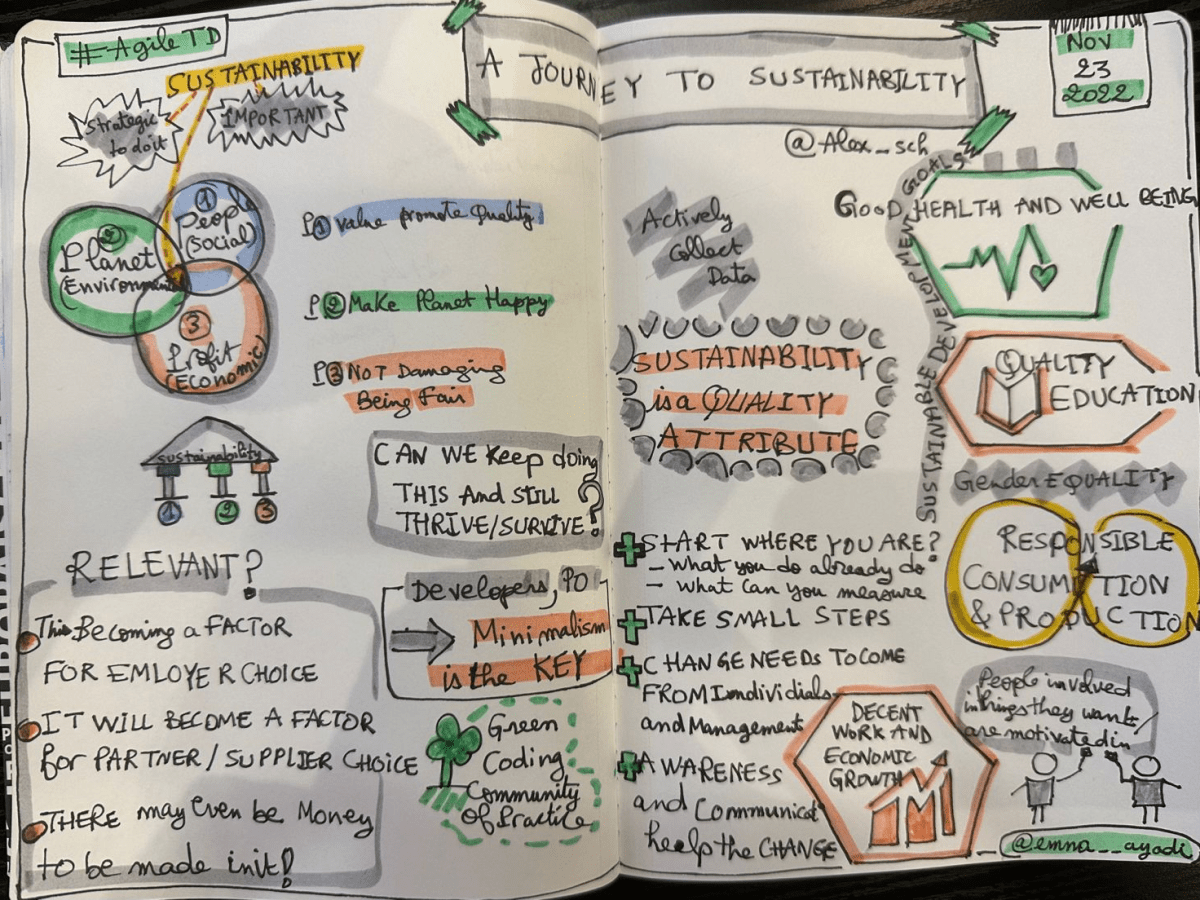 #AgileTD
SUSTAINABILITY
Strategic
to do it
IMPORTANT
1
People
(Social)
2
Planet
(Environment)
3
Profit
(Economic)
P1 value promote Quality
P2 Make Planet Happy
P3 NOT Damaging
Being Fair
sustainability
1 2 3
CAN WE Keep doing
THIS And STILL
THRIVE/SURVIVE?
RELEVANT?
This Becoming a FACTOR
FOR EMLOYER CHOICE
IT WILL BECOME A FACTOR
for PARTNER / SUPPLIER CHOICE
THERE may Even be Money
to be made init!
Developers, PO
Minimalism
is the KEY
Green
Coding
Community
Of Practice
A JOURNEY TO SUSTAINABILITY
NOV
23
2022
@Alex_sch
Actively
Collect
Data
SUSTAINABILITY
is a QUALITY
ATTRIBUTE
START WHERE YOU ARE?
- What you do already do
- what can you measure
TAKE SMALL STEPS
CHANGE NEEDS TO COME
FROM Imdividials
and Management
AWARENESS
and Communicat
heelp the CHANGE
SUSTAINABLE DEVELOPMENT GOALS
GOOD HEALTH AND WELL BEING
QUALITY
EDUCATION
Gender EQUALITY
RESPONSIBLE
CONSUMPTION
& PRODUCTION
DECENT
WORK AND
ECONOMIC
GROWTH
People involved
in things they want
are motivated in
@emna__ayadi